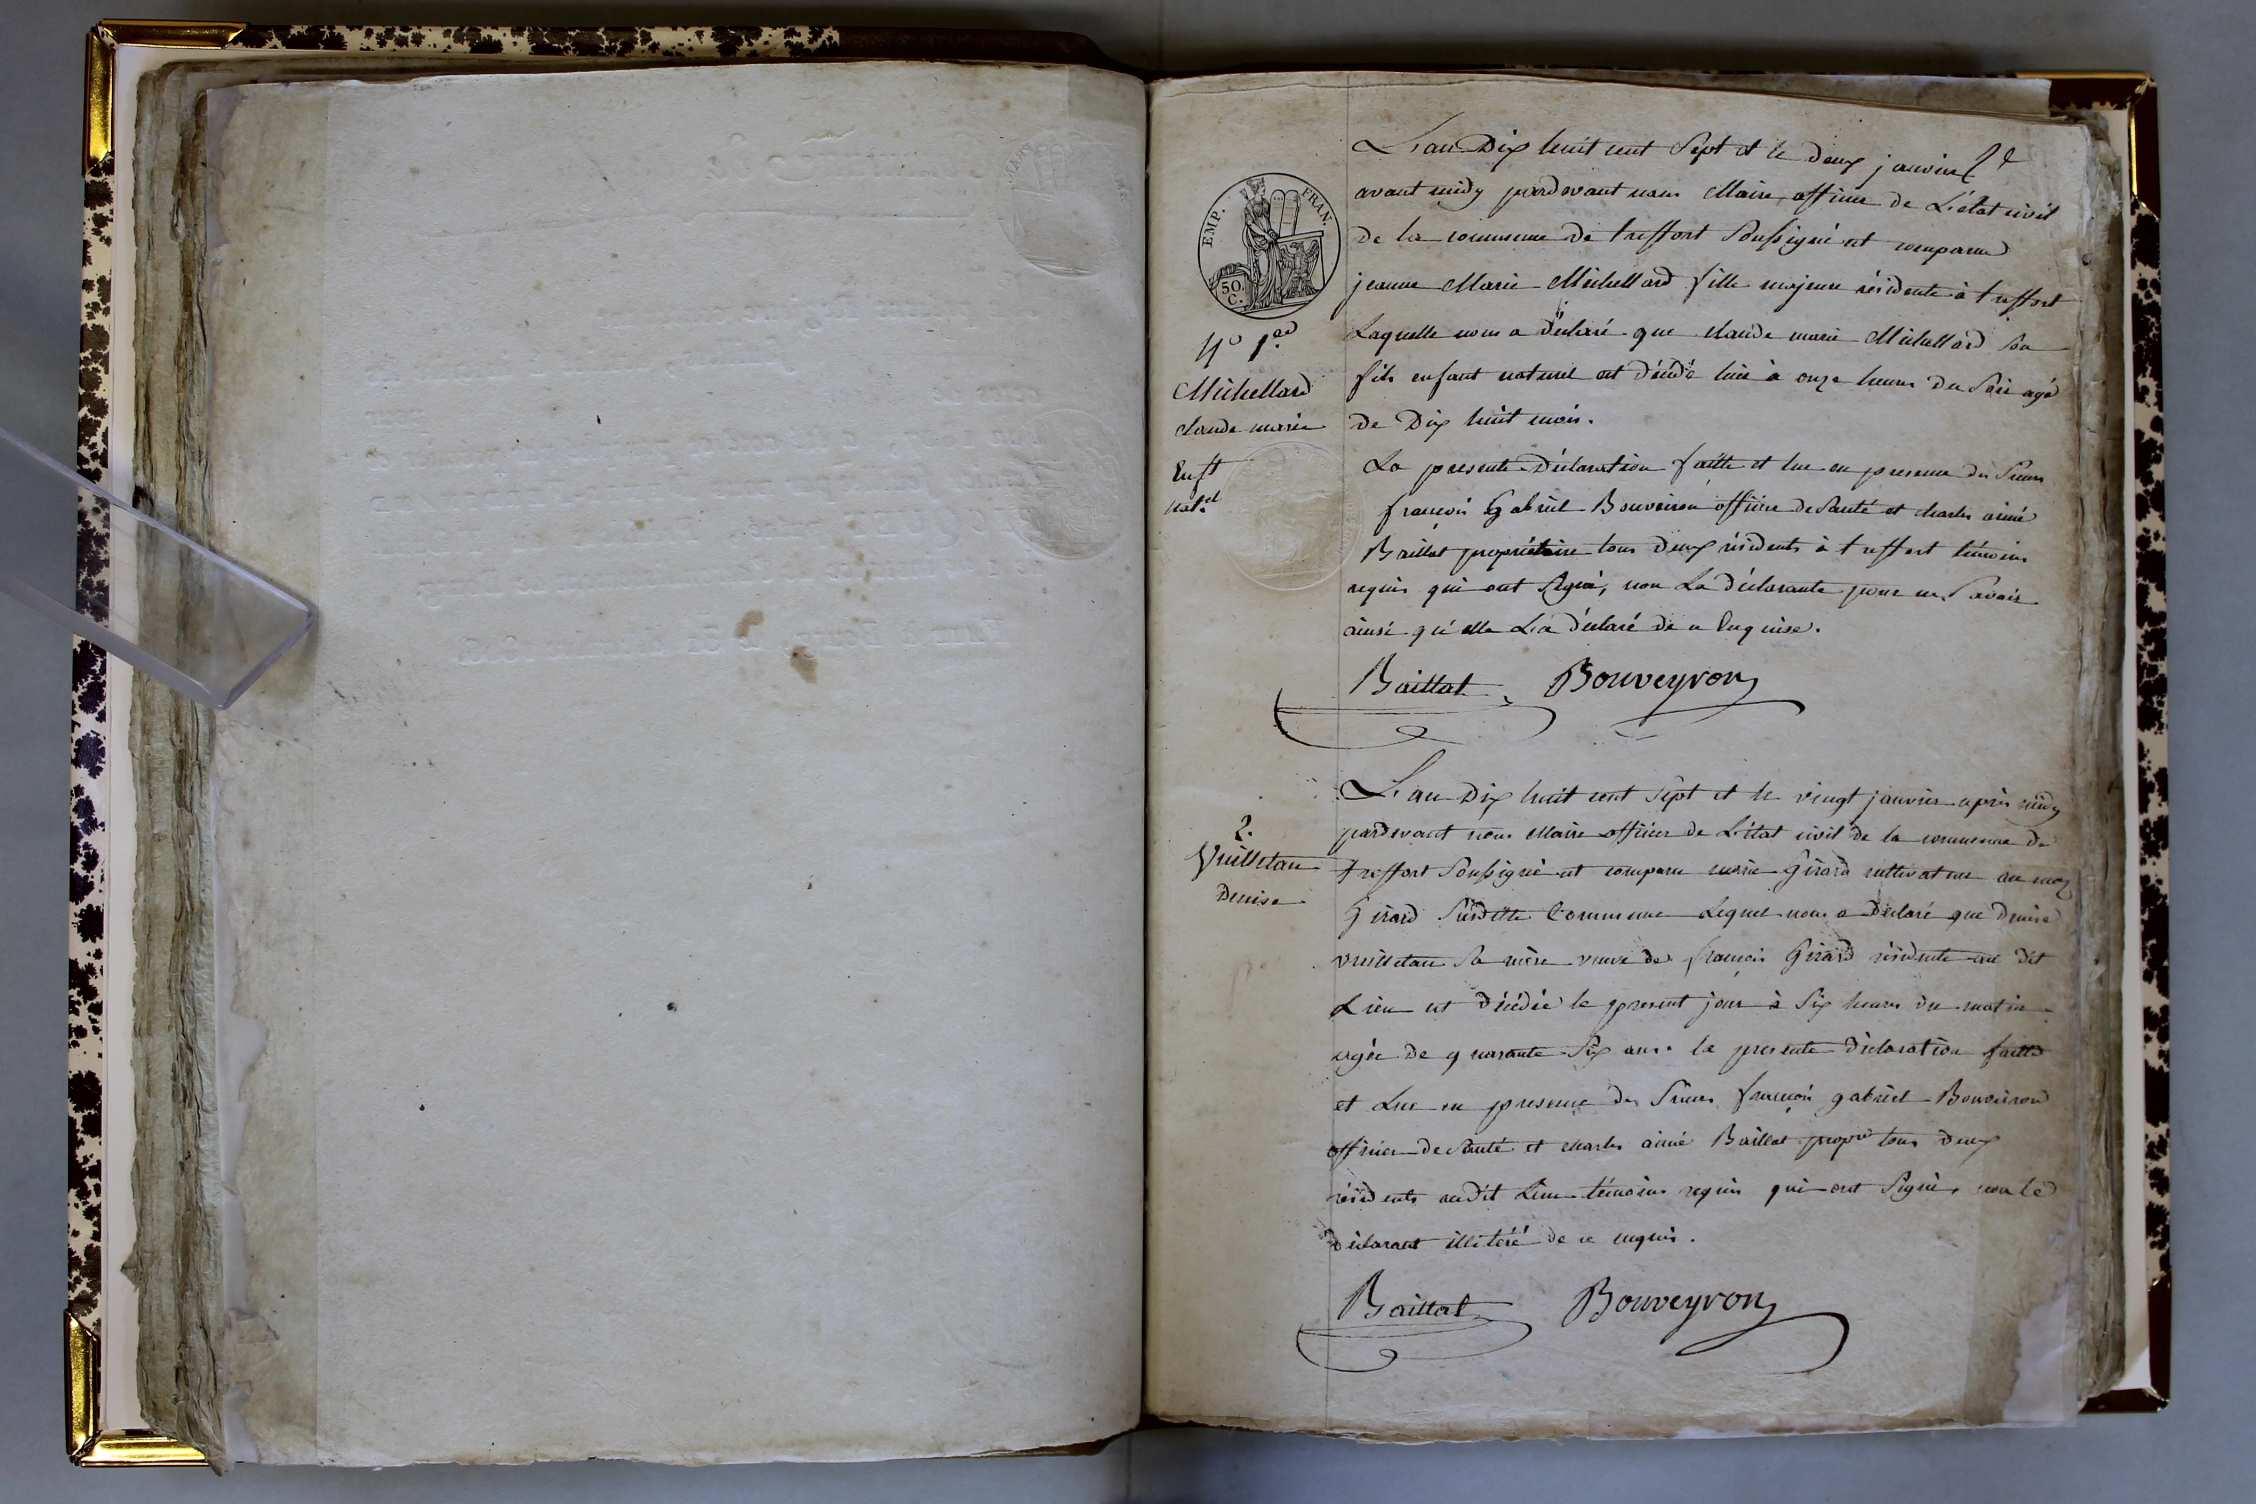 L'an Dix huit cent Sept et le deux janvier
avant midy pardevant nous Maire, officier de L'état civil
de la commune de treffort Soussigné est comparue
jeanne Marie Michellard fille majeure résidente à treffort
Laquelle nous a déclaré que claude marie Michellard son
fils enfant naturel est décédé hier à onze heures du Soir agé
de Dix huit mois.
La presente Déclaration faitte et lue en presence des Sieurs
françois Gabriel Bouveiron officier de Santé et charles aimé
Baillat propriétaire tous deux résidents à treffort témoins
requis qui ont Signé, non La déclarante pour ne Savoir
ainsi qu'elle L'a déclaré de ce Enquise.
Baillat Bouveyron
EMP. FRAN.
50 C.
N° 1er
Michellard
claude marie
Enft
natel
L'an Dix huit cent Sept et le vingt janvier après midy
pardevant nous Maire officier de L'état civil de la commune de
treffort Soussigné est comparu Girard cultivateur au maz
Girard Susditte Commune Lequel nous a Déclaré que Denise
vuilletan Sa mère veuve de françois Girard résidente au dit
Lieu est décédée le present jour à Six heures du matin
agée de quarante Six ans. la presente déclaration faitte
et Lue en presence des Sieurs françois gabriel Bouveiron
officier de Santé et charles aimé Baillat propre tous deux
résidents audit Lieu témoins requis qui ont Signé, non le
déclarant illitéré de ce enquis.
Baillat Bouveyron
2.
Vuilletan
Denise